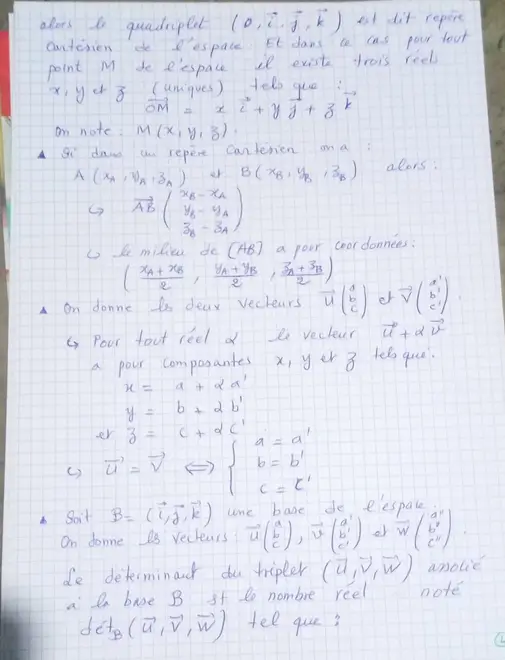 alors le quadriplet (O, i⃗, j⃗, k⃗) est dit repère
Cartésien de l'espace. Et dans ce cas pour tout
point M de l'espace il existe trois réels
x, y et z (uniques) tels que :
OM⃗ = x i⃗ + y j⃗ + z k⃗
On note : M(x, y, z).
▲ Si dans un repère Cartésien on a :
A(x_A, y_A, z_A) et B(x_B, y_B, z_B) alors :
↪ AB⃗ (x_B - x_A
y_B - y_A
z_B - z_A)
↪ le milieu de [AB] a pour coordonnées :
((x_A + x_B)/2 , (y_A + y_B)/2 , (z_A + z_B)/2)
▲ On donne les deux vecteurs u⃗ (a b c) et v⃗ (a' b' c').
↪ Pour tout réel α le vecteur u⃗ + α v⃗
a pour composantes x, y et z tels que :
x = a + α a'
y = b + α b'
et z = c + α c'
↪ u⃗ = v⃗ ⟺ { a = a'
b = b'
c = c'
▲ Soit B = (i⃗, j⃗, k⃗) une base de l'espace.
On donne les vecteurs : u⃗ (a b c), v⃗ (a' b' c') et w⃗ (a'' b'' c'').
Le déterminant du triplet (u⃗, v⃗, w⃗) associé
à la base B est le nombre réel noté
dét_B (u⃗, v⃗, w⃗) tel que :